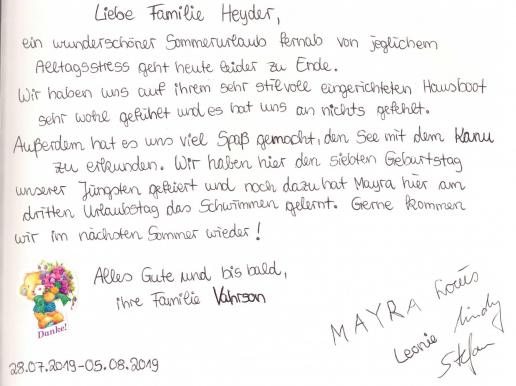 Liebe Familie Heyder,
ein wunderschöner Sommerurlaub fernab von jeglichem
Alltagsstress geht heute leider zu Ende.
Wir haben uns auf ihrem sehr stilvoll eingerichteten Hausboot
sehr wohl gefühlt und es hat uns an nichts gefehlt.
Außerdem hat es uns viel Spaß gemacht, den See mit dem Kanu
zu erkunden. Wir haben hier den siebten Geburtstag
unserer Jüngsten gefeiert und noch dazu hat Mayra hier am
dritten Urlaubstag das Schwimmen gelernt. Gerne kommen
wir im nächsten Sommer wieder!
Alles Gute und bis bald,
ihre Familie Vahrson
Danke!
MAYRA
Leonie Lindy
Stefan
28.07.2019-05.08.2019